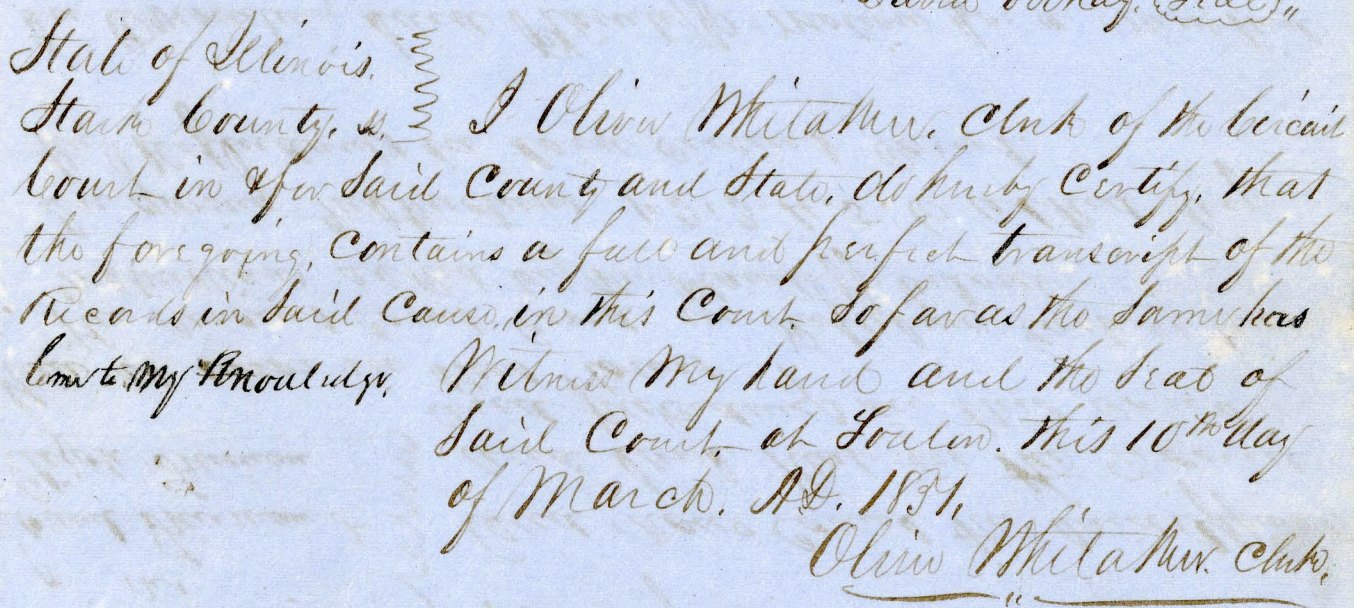 David [Seal] "
State of Illinois.
Stark County. ss. I Oliver Whitaker. Clerk of the Circuit
Court in & for Said County and State, do hereby Certify, that
the foregoing, Contains a full and perfect transcript of the
Records in Said Cause, in this Court. So far as the Same has
Come to My Knowledge. Witness My hand and the Seal of
Said Court. at Toulon. this 10th day
of March. A.D. 1851,
Oliver Whitaker. Clerk.